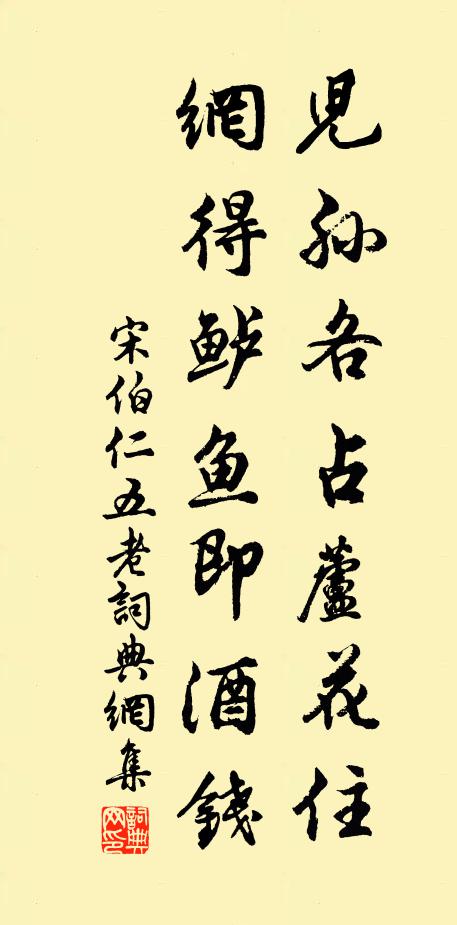 兒孫各占蘆花住
網得鲈鱼即酒錢
宋伯仁五老詞典網集
詞典网印